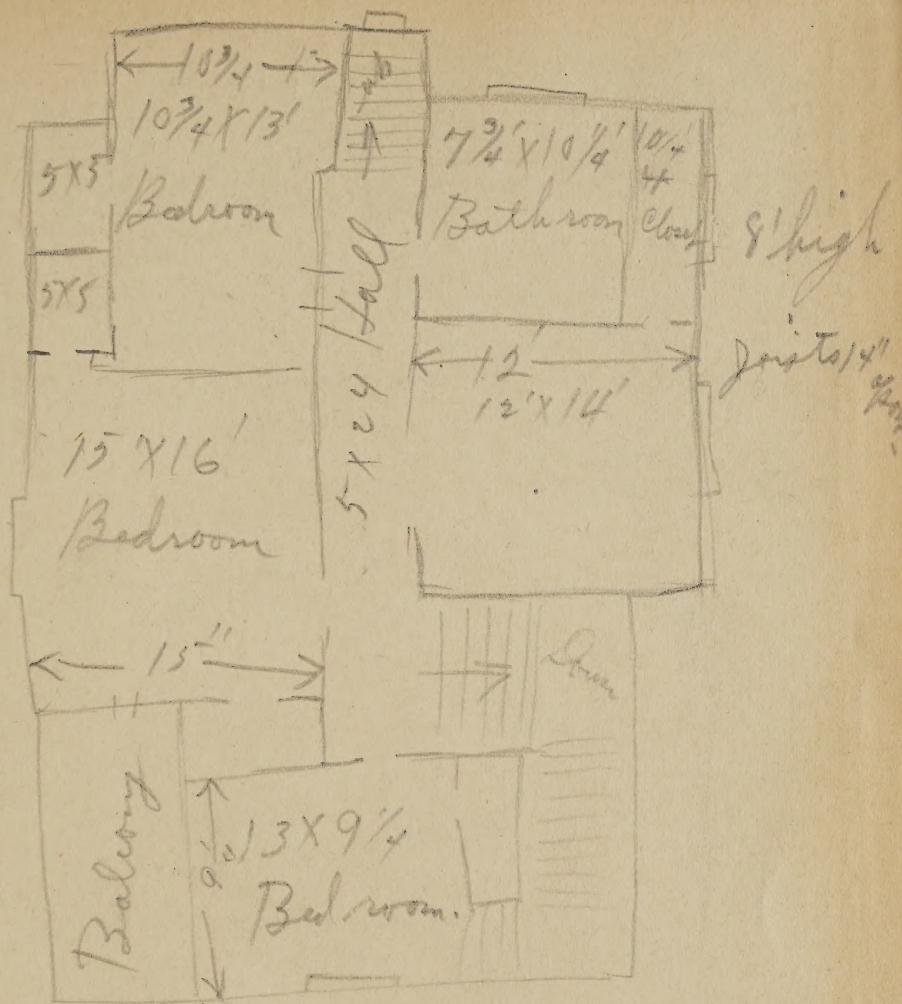 10 3/4
10 3/4 X 13'
Bedroom
up
5X5
5X5
7 3/4' X 10 1/4'
Bathroom
10 1/4
4
Closet
8' high
Joists 14"
5 X 24 Hall
12'
12' X 14'
15 X 16'
Bedroom
15'
Down
Balcony
9'
13 X 9 1/4
Bed room.